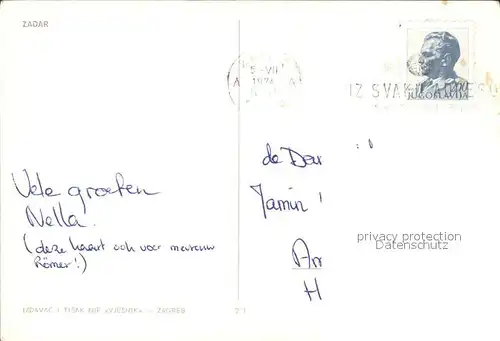 ZADAR
5-VII
1974
IZ SVAKU
JUGOSLAVIJA
de Deur
Jamin
Vele groeten
Nella.
(deze kaart ook voor mevrouw
Römer!)
privacy protection
Datenschutz
Arr
H
IZDAVAČ I TISAK NIP »VJESNIK« — ZAGREB